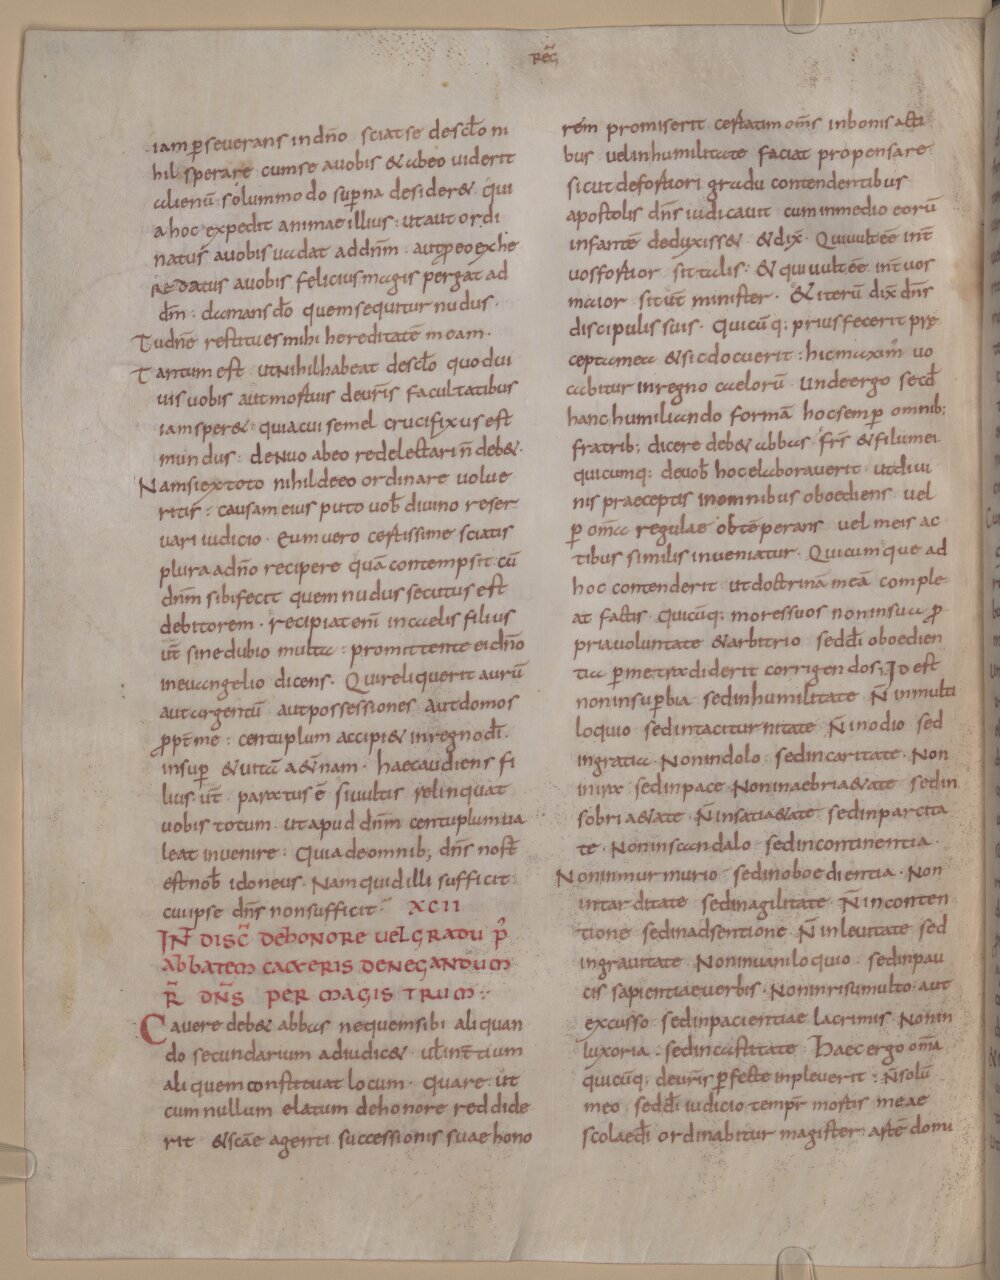 REḠ
iam ꝑseverans in dn̄o · sciat se de sc̄lo ni
hil sperare cum se a uobis & ab eo uiderit
alienū · solummodo suꝑna desider& qui
a hoc expedit animae illius · ut aut ordi
natus a uobis uadat ad dn̄m · aut ꝓ eo exhe
redatus a uobis felicius magis pergat ad
dm̄ · damans do quem sequitur nudus ·
Tu dn̄e restitues mihi hereditatē meam ·
Tantum est ut nihil habeat de sc̄lo quod ui
uis uobis aut mortuis de ur̄is facultatibus
iam sper& · quia cui semel crucifixus est
mundus · denuo ab eo redelectari n̄ deb& ·
Nam si ex toto nihil de eo ordinare uolue
ritis : causam eius puto uob̄ diuino reser
uari iudicio · Eum uero certissime sciatis
plura a dn̄o recipere quā contempsit cū
dn̄m sibi fecit quem nudus secutus est
debitorem · recipiat enī in caelis filius
ur̄ sine dubio multa : promittente ei dn̄o
in euangelio dicens · Qui reliquerit aurū
aut argentū aut possessiones aut domos
ꝓpt̄ me : centuplum accipi& in regno dī ·
insuꝑ & uitā a&nam · haec audiens fi
lius ur̄ paratus ē si uultis relinquat
uobis totum · ut apud dn̄m centuplum ua
leat inuenire · Quia de omnib; dn̄s nost̄
est nob̄ idoneus · Nam quid illi sufficit
cui ipse dn̄s non sufficit · XCII
IN̄T DISC̄ DE HONORE UEL GRADU P̄
ABBATEM CAETERIS DENEGANDUM
R̄ DN̄S PER MAGISTRUM :·
Cauere deb& abbas ne quem sibi aliquan
do secundarium adiudic& ul̄ in t̄tium
aliquem constituat locum · Quare · ut
cum nullum elatum de honore reddide
rit & sc̄ae agenti successionis suae hono
rem promiserit certatim om̄s in bonis acti
bus uel in humilitate faciat propensare
sicut de fortiori gradu contendentibus
apostolis dn̄s iudicauit cum in medio eorū
infantē deduxiss& & dix̄ · Qui uult ēē int̄
uos fortior sit talis · & qui uult ēē int̄ uos
maior sit ur̄ minister · & iterū dix̄ dn̄s
discipulis suis · Quicūq; prius fecerit prę
cepta mea & sic docuerit : hic maxim' uo
cabitur in regno caelorū · Unde ergo secd̄
hanc humiliando formā hoc semꝑ omnib;
fratrib; dicere deb& abbas · fr̄s & filii mei
quicumq; de uob̄ hoc elaborauerit ut diui
nis praeceptis in omnibus oboediens uel
ꝑ om̄a regulae obtēperans uel meis ac
tibus similis inueniatur · Quicumque ad
hoc contenderit ut doctrinā meā comple
at factis · Quicūq; mores suos non in sua ꝓ
pria uoluntate & arbitrio sed dī oboedien
tia ꝑ me tradiderit corrigendos · Id est
non in suꝑbia sed in humilitate N̄ in multi
loquio sed in taciturnitate N̄ in odio sed
in gratia · Non in dolo sed in caritate · Non
in ira sed in pace Non in aebria&ate sed in
sobria&ate N̄ in satia&ate sed in parcita
te · Non in scandalo sed in continentia ·
Non in murmurio sed in oboedientia · Non
in tarditate sed in agilitate N̄ in conten
tione sed in adsentione N̄ in leuitate sed
in grauitate Non in uaniloquio · sed in pau
cis sapientiae uerbis · Non in risu multo aut
excusso sed in pacientiae lacrimis · Non in
luxoria · sed in castitate Haec ergo om̄a
quicūq; de ur̄is ꝑfecte inpleuerit : n̄ solū
meo sed dī iudicio tempr̄ mortis meae
scolae dī ordinabitur magister · astē domi